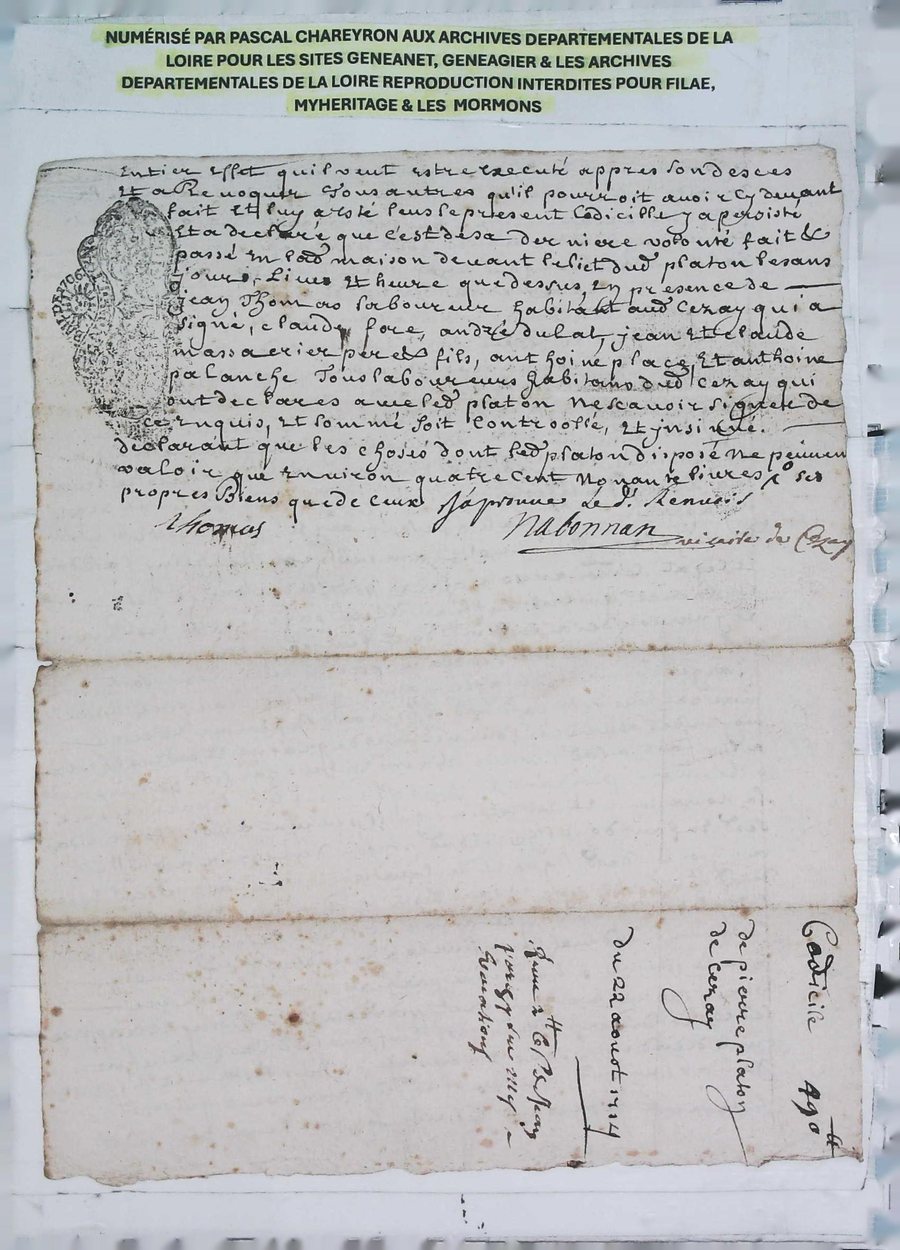 NUMÉRISÉ PAR PASCAL CHAREYRON AUX ARCHIVES DEPARTEMENTALES DE LA
LOIRE POUR LES SITES GENEANET, GENEAGIER & LES ARCHIVES
DEPARTEMENTALES DE LA LOIRE REPRODUCTION INTERDITES POUR FILAE,
MYHERITAGE & LES MORMONS
Entier Effet quil veut estre executé appres son deces
Et a Revoquer Tous autres qu'il pourroit avoir Cy devant
fait Et luy a esté leus le present Codicille y a persisté
Et a declaré que c'est de sa derniere volonté fait &
passé En lad maison devant le lict dud platon les ans
jours, Lieus Et heure que dessus, En presence de
jean Thomas laboureur habitant aud Cezay qui a
signé, claude fore, andré dulac, jean Et claude
massacrier pere & fils, anthoine place, Et anthoine
palanche Tous laboureurs habitans dud Cezay qui
ont declares avec led platon Ne scavoir signer de
ce Enquis, Et sommé soit Controolé, Et ynsinué.
declarant que les choses dont led platon dispose Ne peuvent
valoir que Environ quatre cent Nonante livres
propres Biens que de ceux J'aprouve Le d. Renvois
Thomas
Nabonnan vicaire de Cezay
Codicile 490 ll
de pierre platon
de Cezay
du 22 aoust 1714